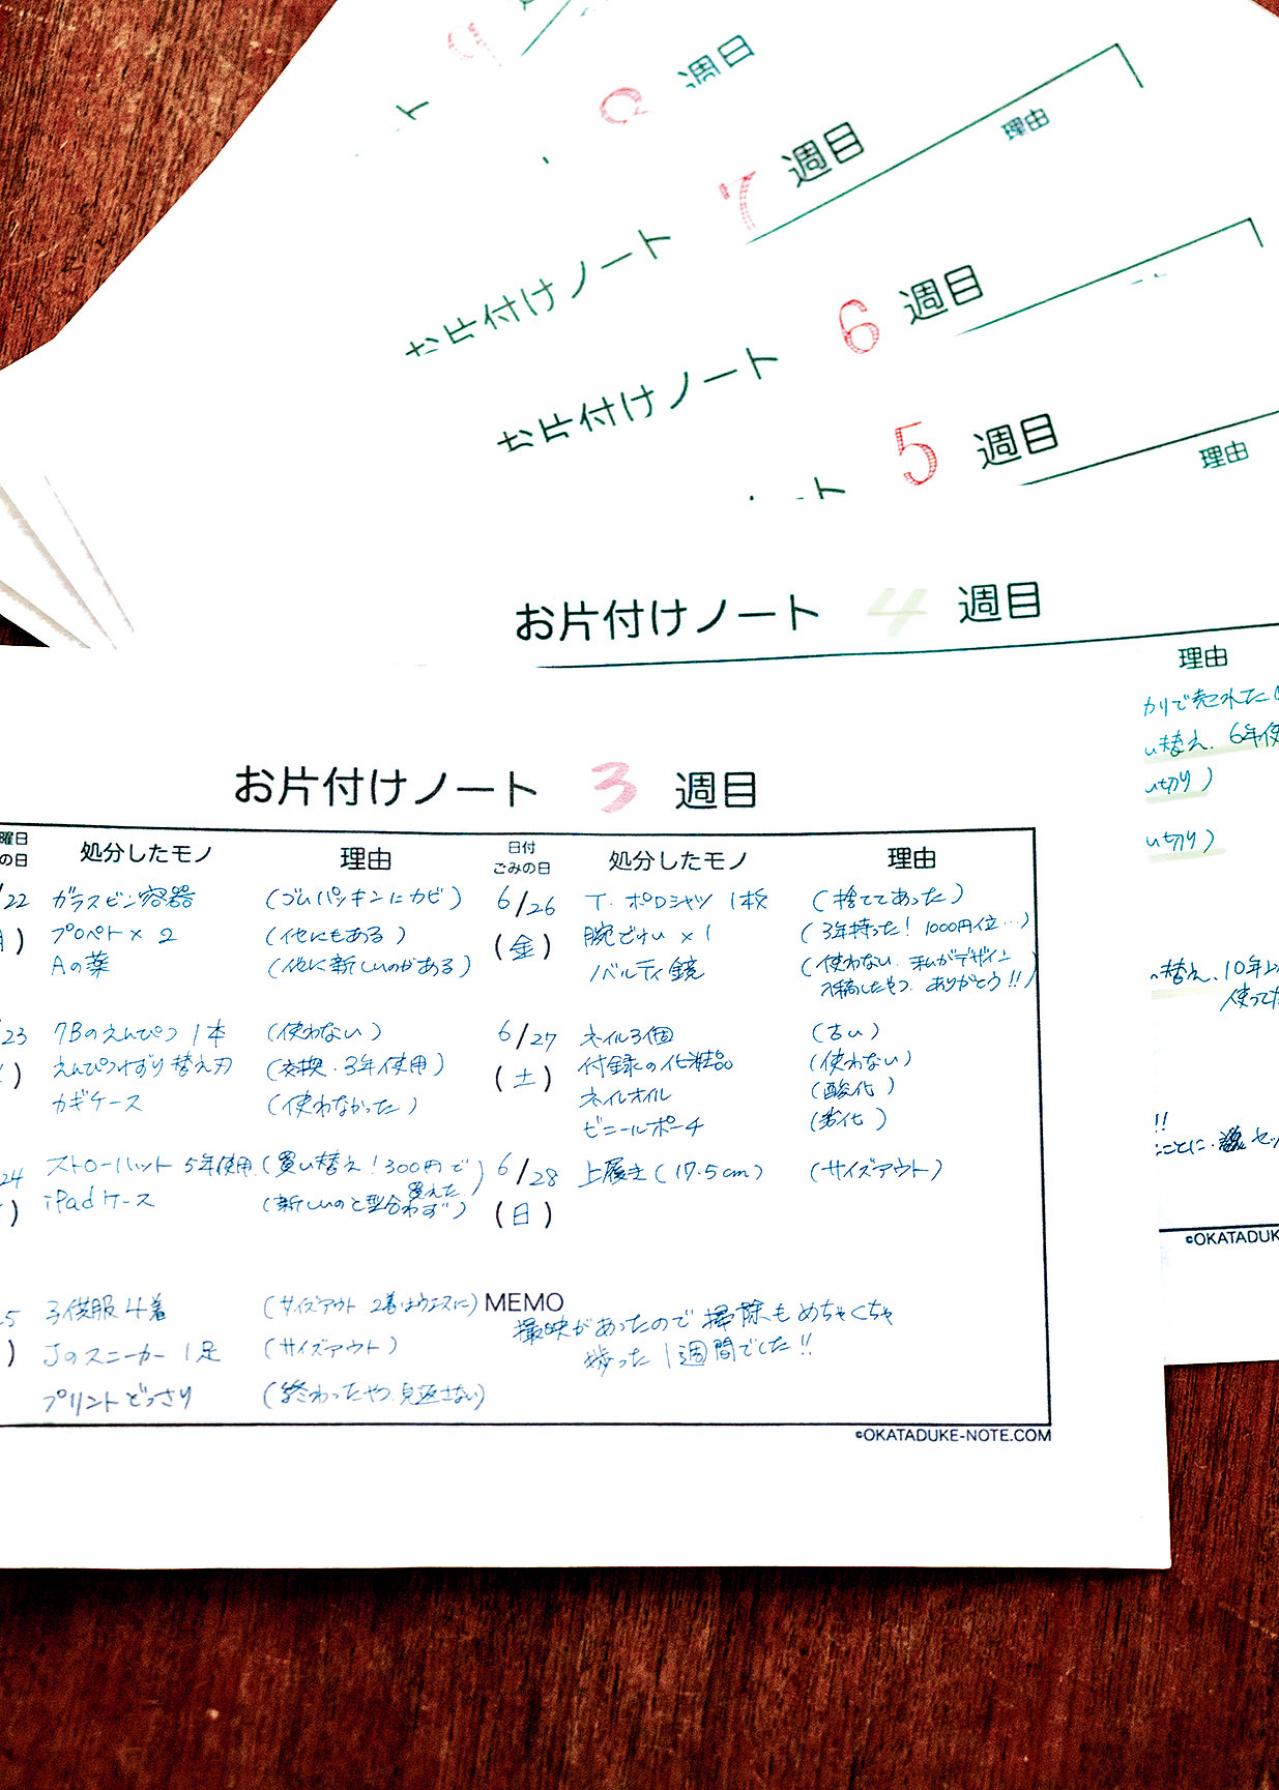 週目
理由
お片付けノート 7 週目
お片付けノート 6 週目
ート 5 週目
理由
お片付けノート 4 週目
理由
カリで売れた
い替え、6年使
い切り)
い切り)
い替え、10年以
使ってた
!!
ことに、
©OKATADUK
お片付けノート 3 週目
曜日
の日
処分したモノ 理由
日付
ごみの日
処分したモノ 理由
/22 ガラスビン容器 (ゴムパッキンにカビ)
プロペト×2 (他にもある)
Aの薬 (他に新しいのがある)
23 7Bのえんぴつ 1本 (使わない)
えんぴつけずり替え刃 (交換・3年使用)
カギケース (使わなかった)
24 ストローハット 5年使用 (買い替え!300円で
買えた)
iPadケース (新しいのと型合わず)
5 子供服4着 (サイズアウト 2着はウエスに)
Jのスニーカー 1足 (サイズアウト)
プリントどっさり (終わったやつ 見返さない)
6/26 T.ポロシャツ 1枚 (捨ててあった)
(金) 腕どけい×1 (3年持った!1000円位…)
ノベルティ鏡 (使わない 私がデザイン
入稿したやつ ありがとう!!)
6/27 ネイル3個 (古い)
(土) 付録の化粧品 (使わない)
ネイルオイル (酸化)
ビニールポーチ (劣化)
6/28 上履き(17.5cm) (サイズアウト)
(日)
MEMO
撮映があったので掃除もめちゃくちゃ
捗った1週間でした!!
©OKATADUKE-NOTE.COM